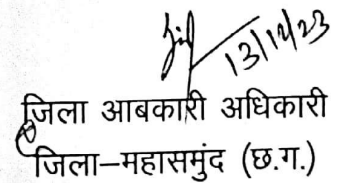 13/12/23
जिला आबकारी अधिकारी
जिला–महासमुंद (छ.ग.)